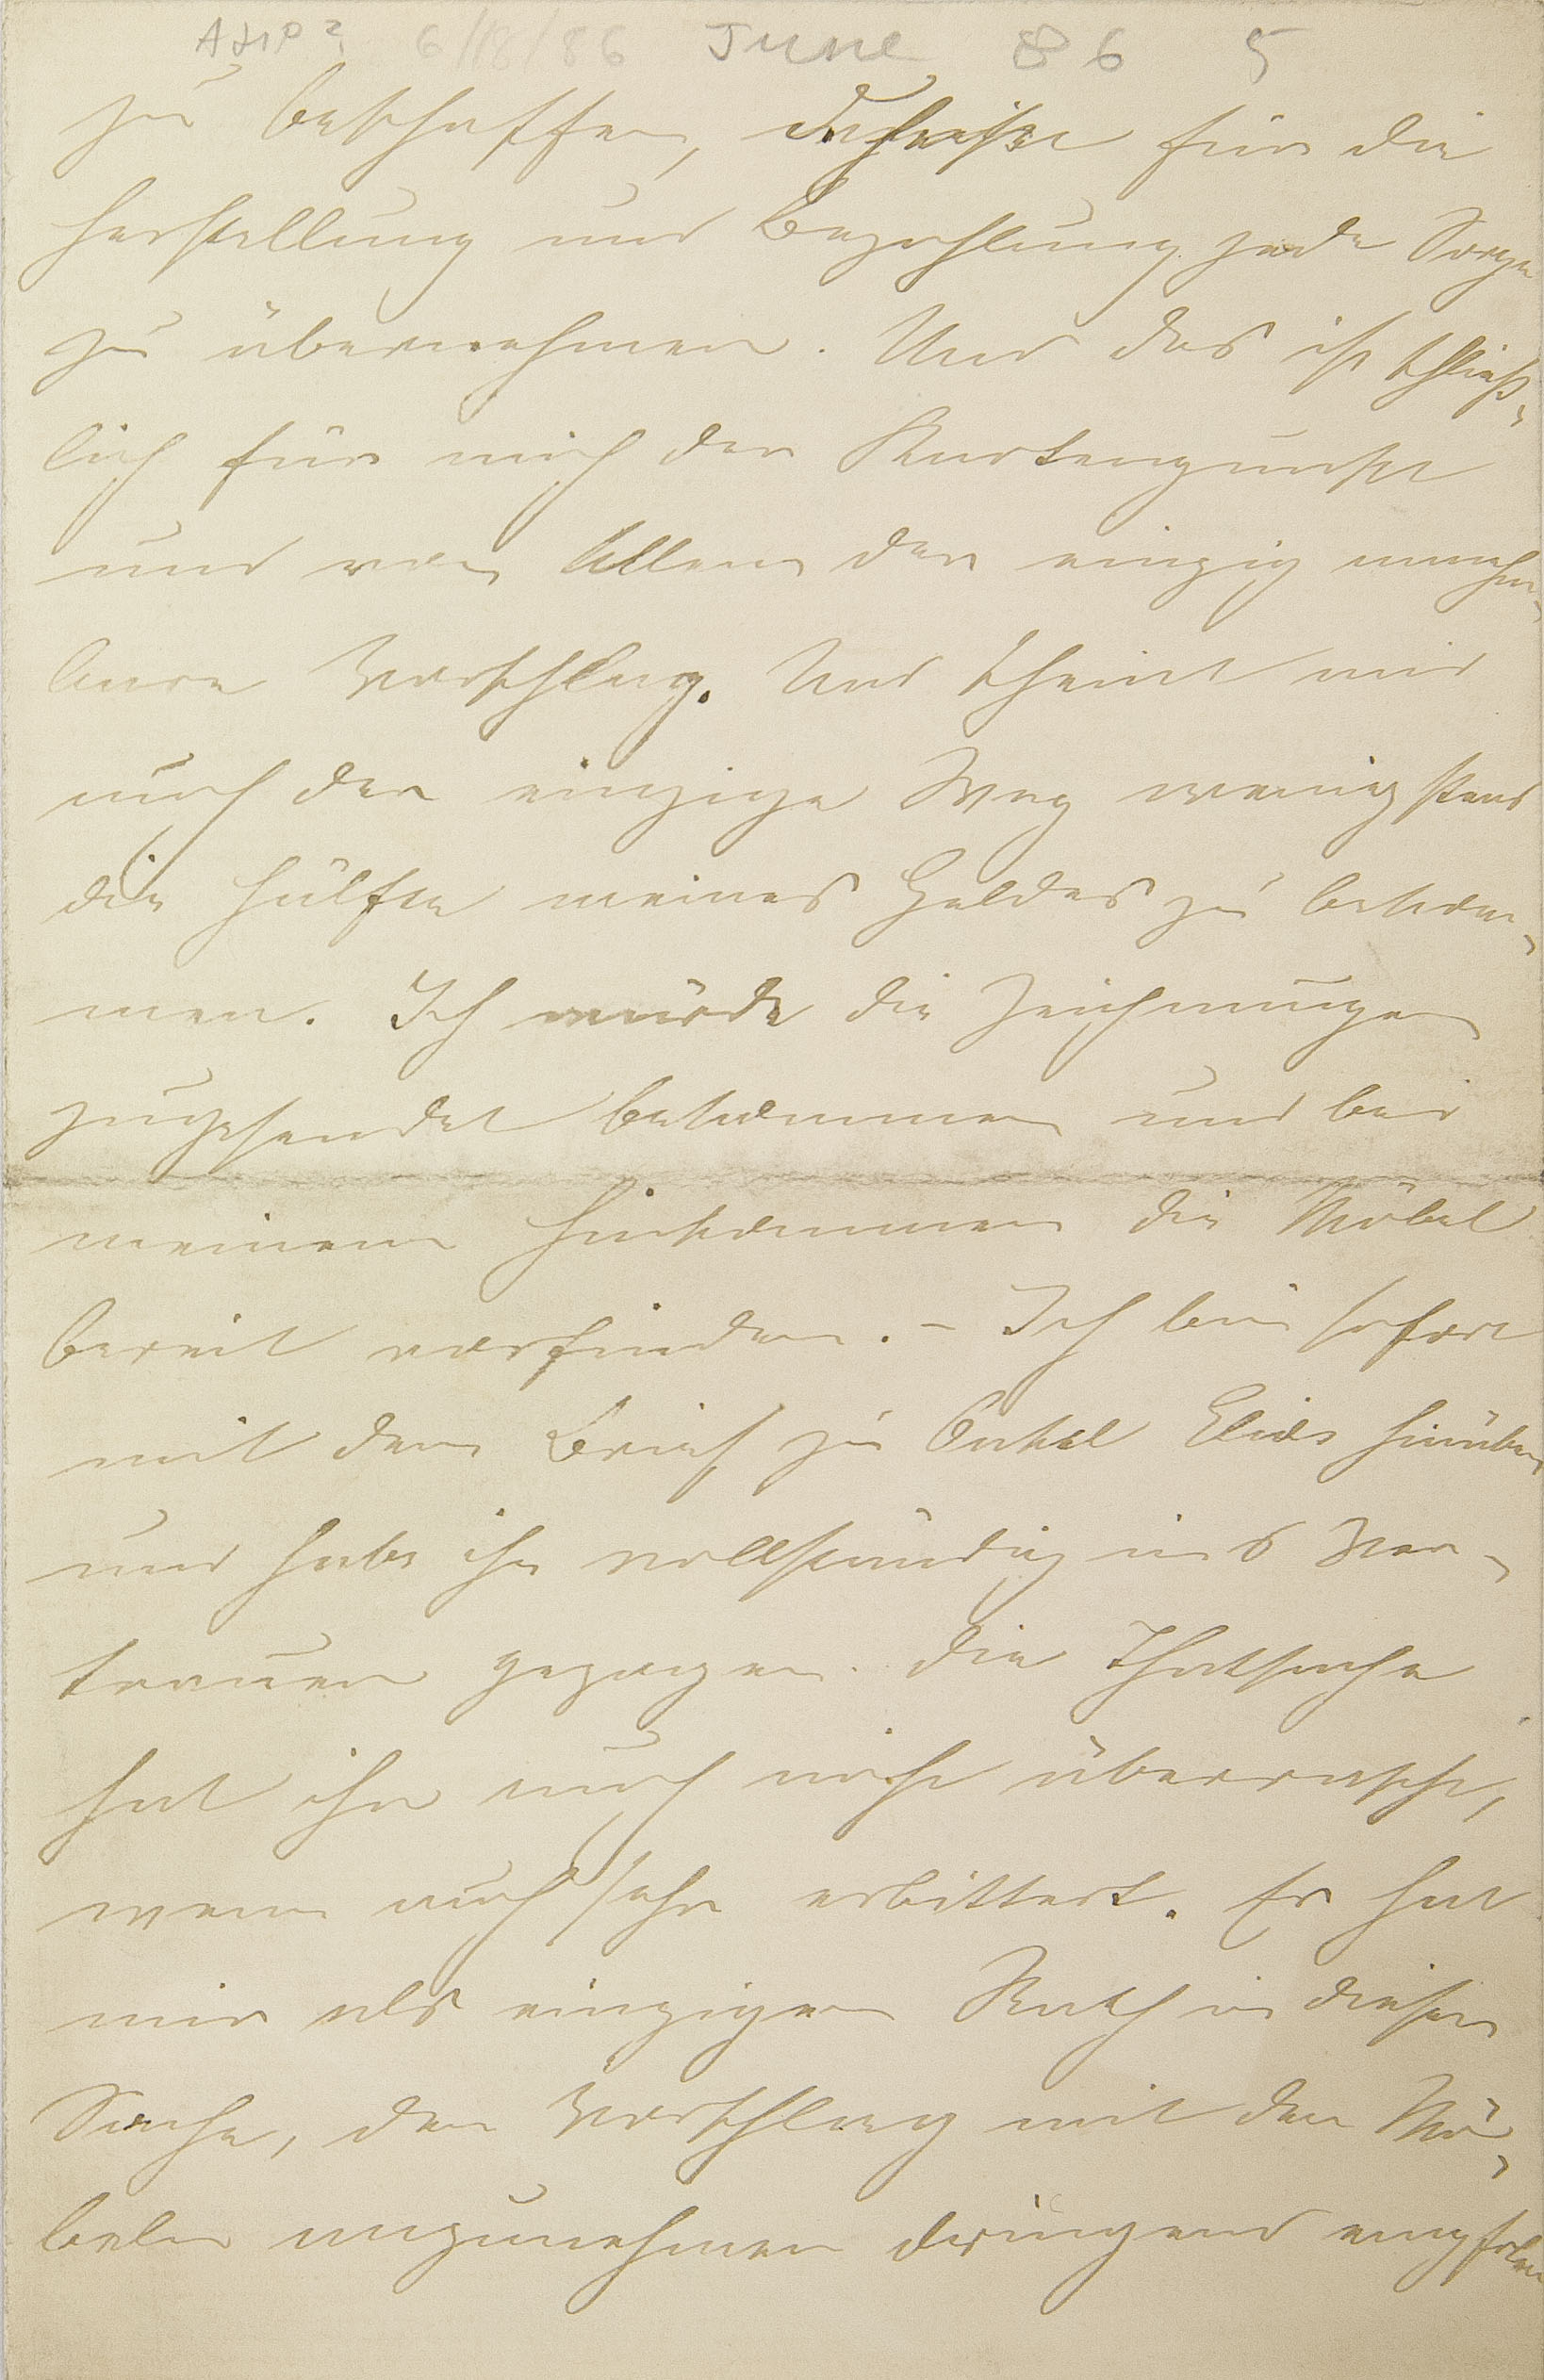 6/18/86 June 86 5
zu beschaffen, für die
Herstellung und Bezahlung jede Sorge
zu übernehmen. Und das ist schließ-
lich für mich der
und vor Allem der einzig annehm-
bare Vorschlag. Und scheint mir
auch der einzige Weg wenigstens
die Hälfte meines Geldes zu bekom-
men. Ich würde die Zeichnungen
zugesendet bekommen und bei
meinem Hinkommen die Möbel
bereit vorfinden. – Ich bin sofort
mit dem Brief zu Onkel Elias hinüber
und habe ihn vollständig ins Ver-
trauen gezogen. Die Thatsache
hat ihn auch nicht überrascht,
wenn auch sehr erbittert. Er hat
mir als einzigen Rath in dieser
Sache, den Vorschlag mit den Mö-
beln anzunehmen dringend empfohlen